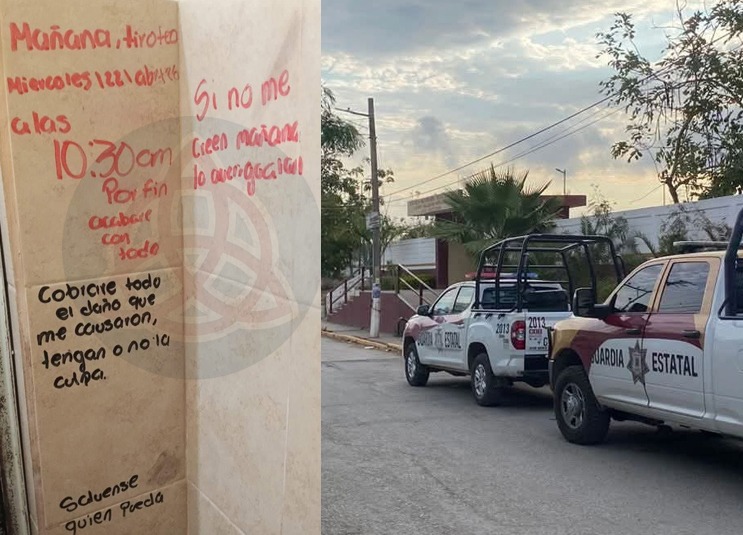 Mañana, tiroteo
Miercoles | 22 | abr
a las
10:30am
Por fin
acabare
con
todo
Si no me
creen mañana
lo averiguaran
Cobrare todo
el daño que
me causaron,
tengan o no la
culpa.
Salvense
quien pueda
2013
2013
GUARDIA ESTATAL
GUARDIA ESTATAL